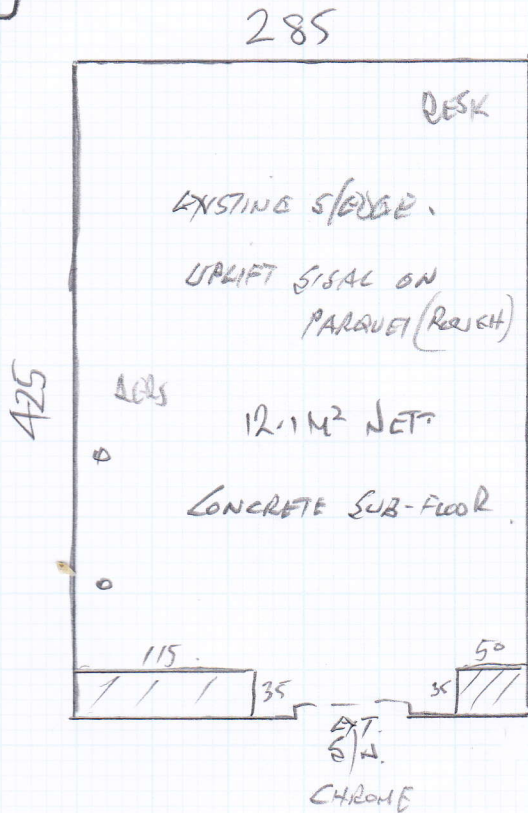 285
DESK
EXISTING S/EDGE.
UPLIFT SISAL ON
PARQUET (ROUGH)
425
12.1 M² NETT
CONCRETE SUB-FLOOR
115
35
50
35
EXT.
CHROME